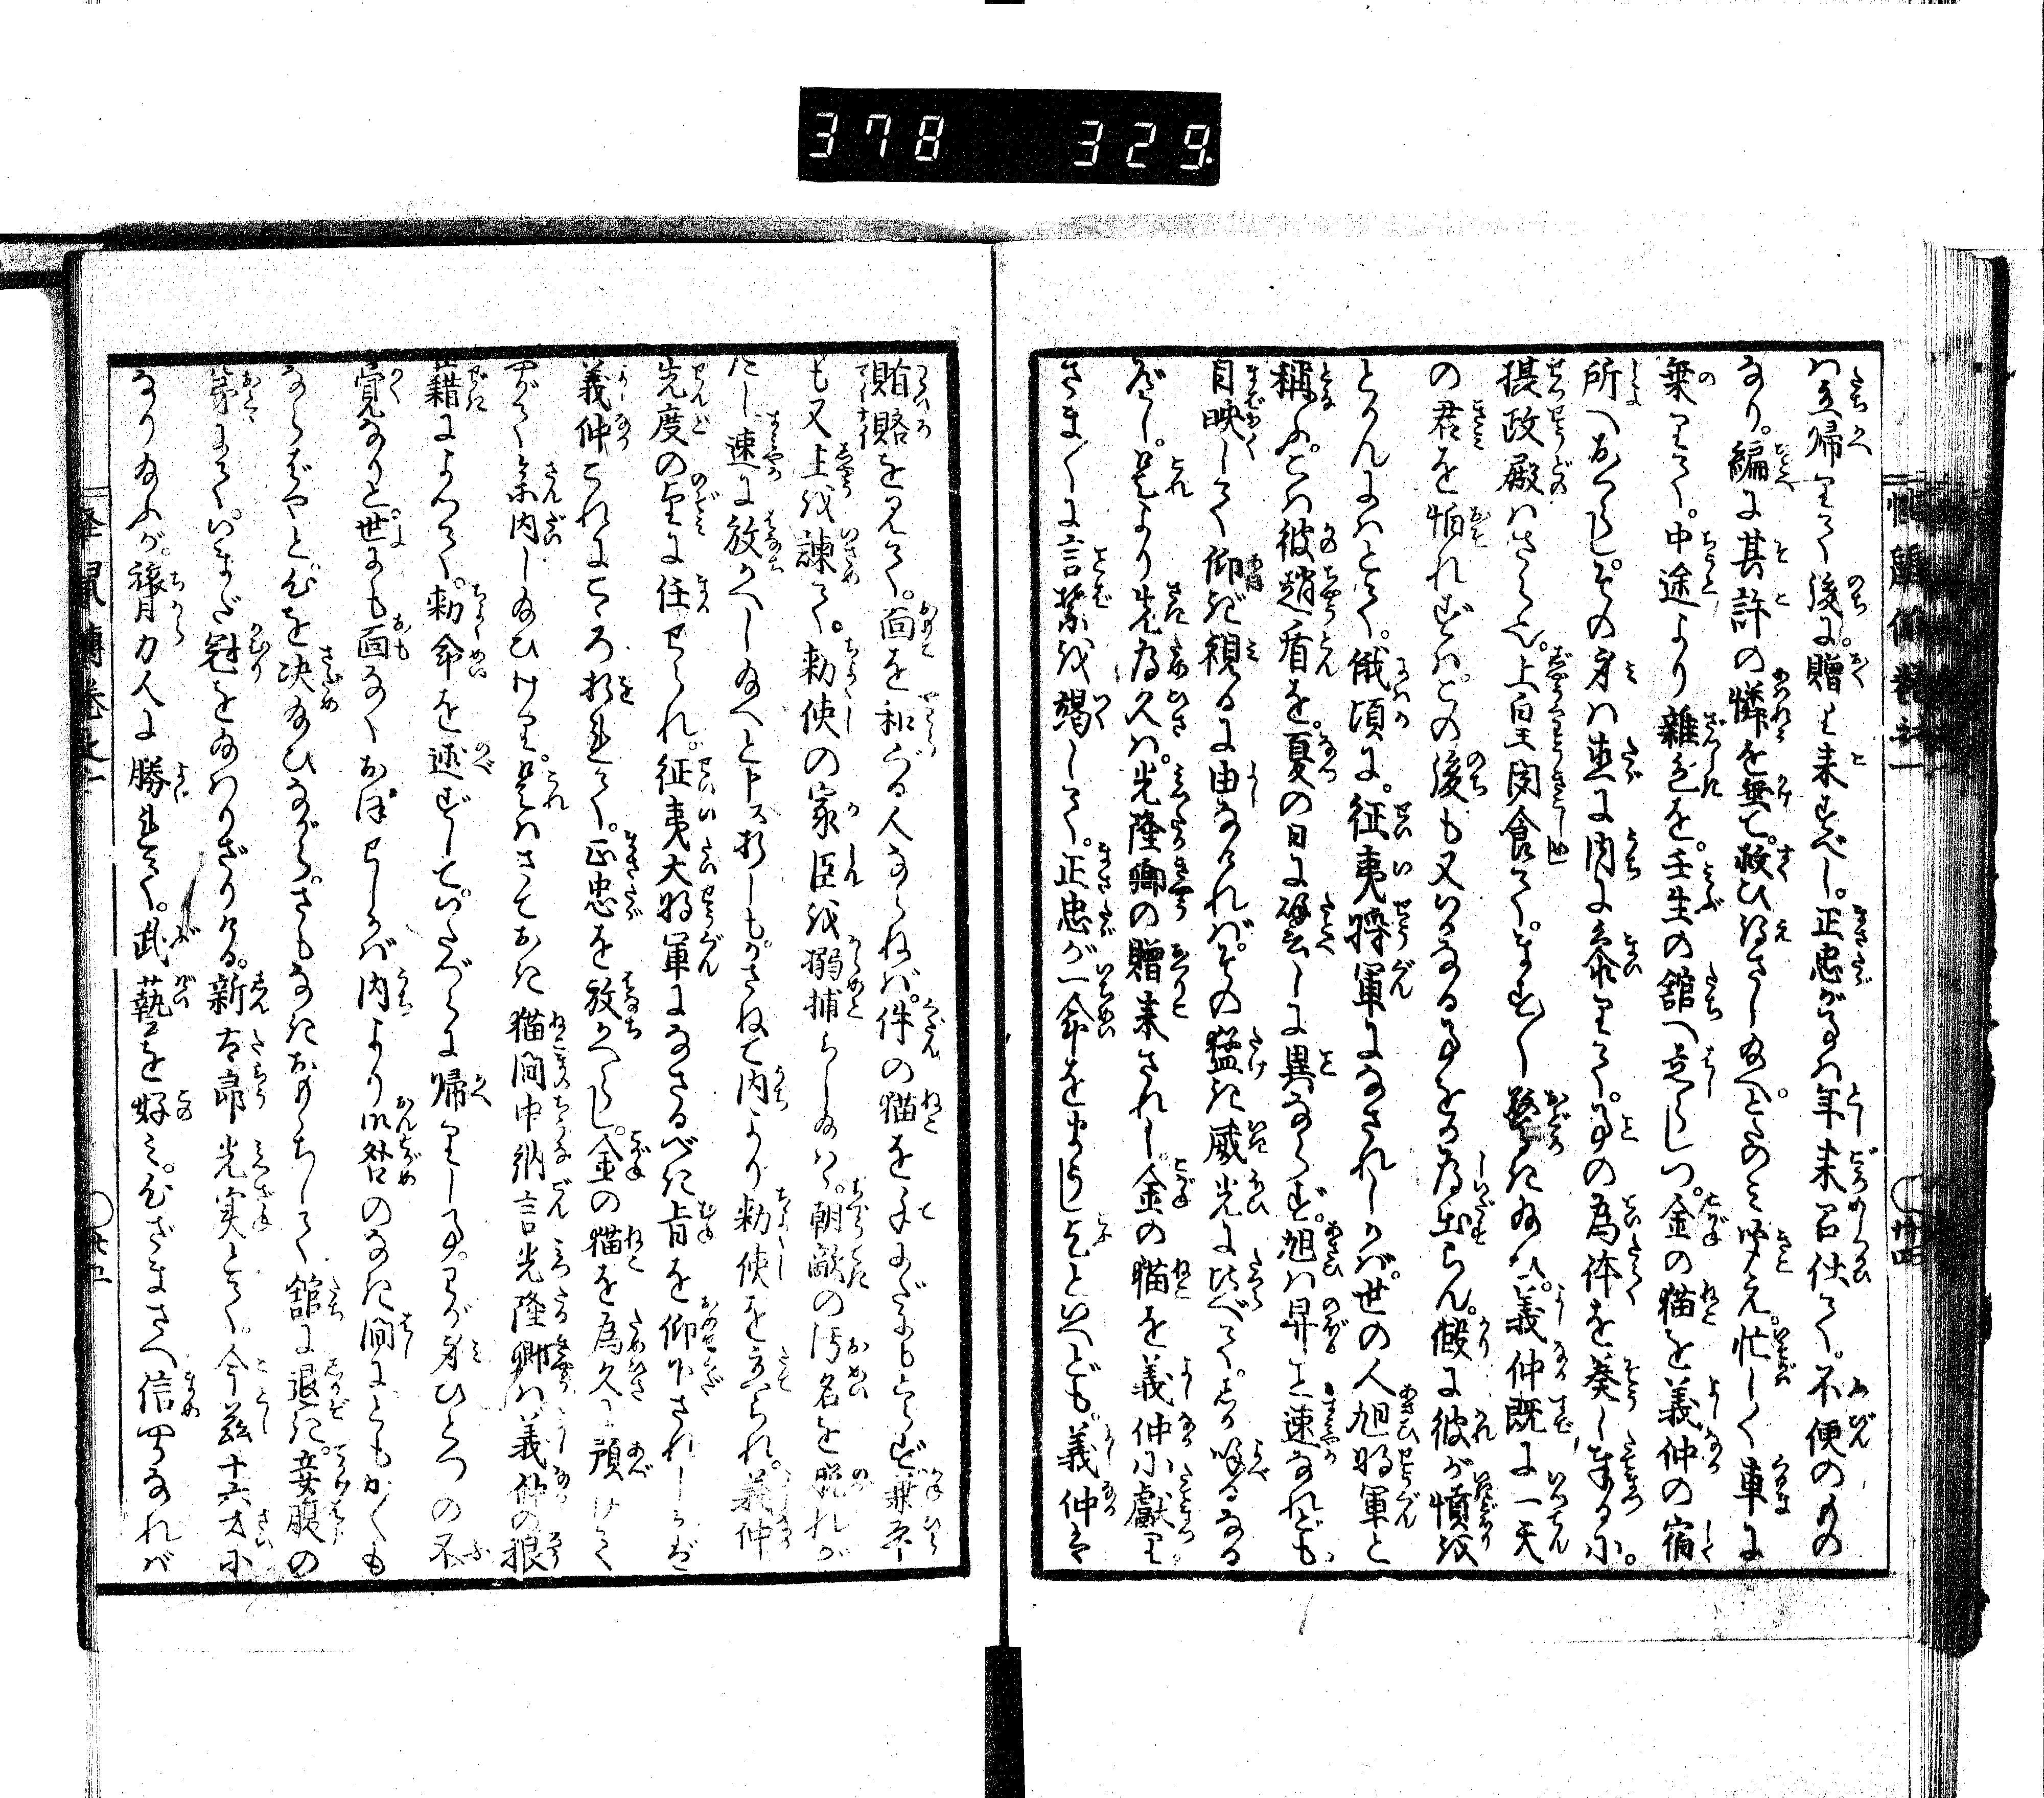 378 329.
は立帰りて後に。贈り来すべし。正忠が事は年来召仕て。不便のもの
なり。編に其許の憐を垂て。救ひ得さし給へとのみ聞え。忙しく車に
乗りて。中途より雑色を。壬生の舘へ走らしつ。金の猫を義仲の宿
所へおくらし。その身は直に内に参りて。事の為体を奏し奉るに。
摂政殿はさら也。上皇聞食て。ます〳〵驚き給ひ。義仲既に一天
の君を怕れずは。この後も又いかなる事をか為出らん。假に彼が憤を
とかんにはとて。俄頃に。征夷将軍になされしかば。世の人旭将軍と
稱ふ。こは彼趙盾を。夏の日に譬しに異ならず。旭は昇と速なれども
目映しくて仰ぎ視るに由なければ。その猛き威光に比べて。しか唱るなる
べし。是より先為久は。光隆卿の贈来されし。金の猫を義仲に獻り
さま〴〵に言葉を竭して。正忠が一命をまうし乞といへども。義仲は
賄賂を見て。面を和ぐる人ならねば。件の猫を手にだにもとらず。兼平
も又上を諫て。勅使の家臣を搦捕らし給はゞ。朝敵の汚名を脱れが
たし。速に放かへし給へと申す折しも。かさねて内より勅使を立られ。義仲
先度の望に任せられ。征夷大将軍になさるべき旨を仰下されしかば
義仲これにこゝろ折れて。正忠を放かへし。金の猫を為久に預けて
やがて参内し給ひけり。是はさておき猫間中納言光隆卿は義仲の狼
藉によつて。勅命を述ずして。いたづらに帰りし事。わが身ひとつの不
覚なりと。世にも面なくおぼせしかば内より御咎のなき間にともかくも
ならばやと。心を决給ひながら。さもなきおももちして舘に退き。妾腹の
弟にて。いまだ冠を給はりざりける。新太郎光実とて。今茲十六才に
なり給ふが。膂力人に勝れて。武藝を好み。心ざまさへ信やかなれば